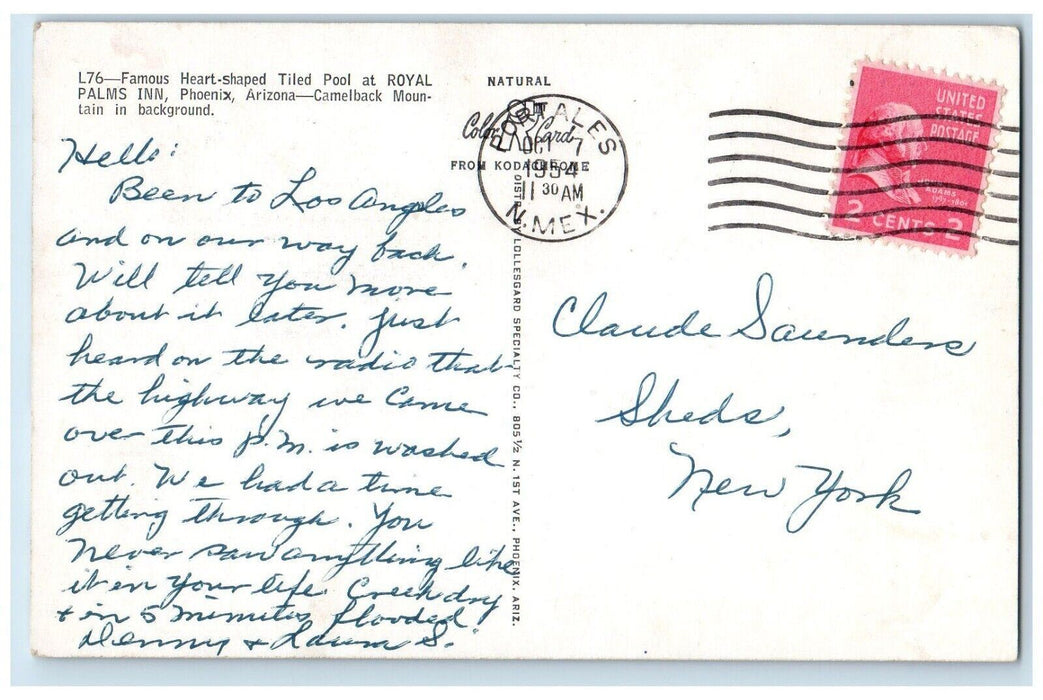 L76—Famous Heart-shaped Tiled Pool at ROYAL
PALMS INN, Phoenix, Arizona—Camelback Moun-
tain in background.
Hello:
Been to Los Angeles
and on our way back.
Will tell you more
about it later. Just
heard on the radio that
the highway we came
over this p.m. is washed
out. We had a time
getting through. You
never saw anything like
it in your life. Creek dry
+ in 5 minutes flooded
Denny + Laura S.
NATURAL
Color Card
FROM KODACHROME
DISTR. BY LOLLESGARD SPECIALTY CO., 805½ N. 1ST AVE., PHOENIX, ARIZ.
PORTALES
OCT 7
1954
11 30 AM
N. MEX.
UNITED
STATES
POSTAGE
ADAMS
2 CENTS 2
Claude Saunders
Sheds,
New York